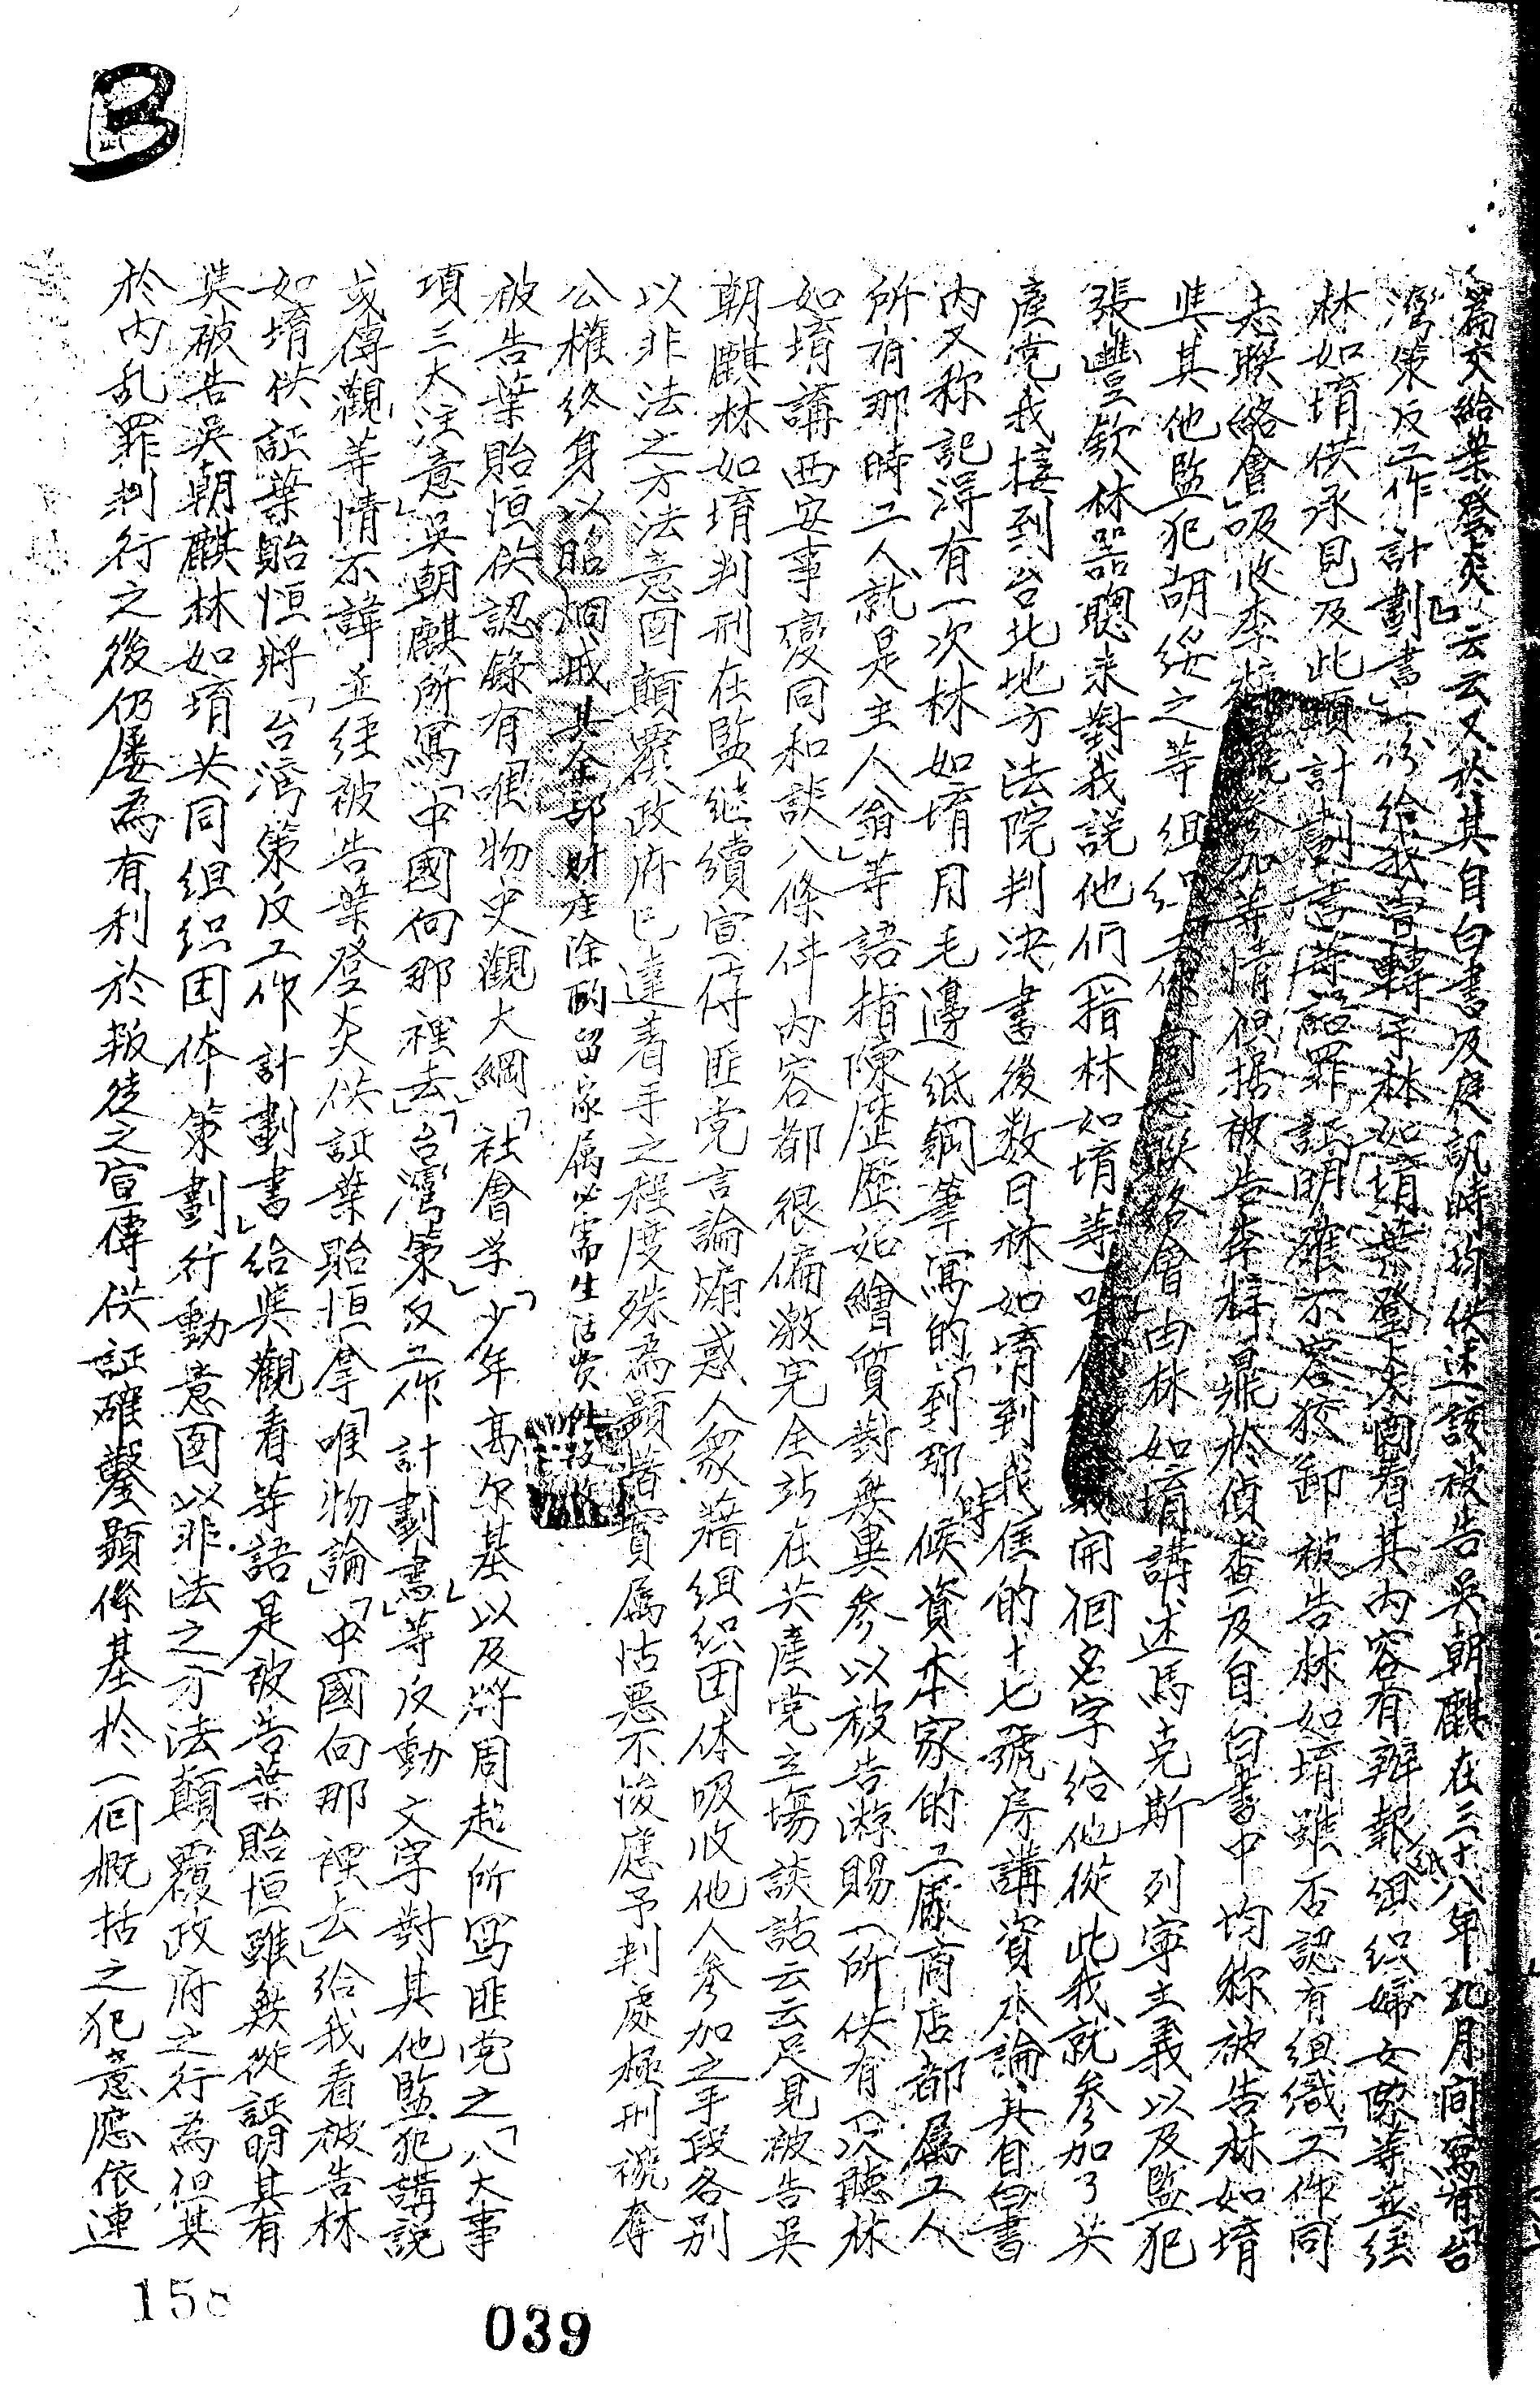 B
篇交給葉登炎」云云又於其自白書及庭訊時均供述該被告吳朝麒在三十八年九月間寫有「台
灣策反工作計劃書」一份給我看轉予林如堉葉登炎閱看其內容有辦報紙組织婦女隊等並經
林如堉供承見及此項計劃書等語罪証明確不容狡卸被告林如堉雖否認有組織「工作同
志聯絡會」吸收李 參加等情但据被告李 鼎於偵查及自白書中均称被告林如堉
與其他監犯胡綏之等組织工作同志聯絡會由林如堉講述馬克斯列寧主義以及監犯
張豐欽林器聰来對我説他們（指林如堉等） 開個名字給他從此我就参加了共
產党我接到台北地方法院判決書後数日林如堉到我住的十七號房講資本論其自白書
內又称記得有一次林如堉用毛邊纸鋼筆寫的「到那時候資本家的工廠商店都属工人
所有那時工人就是主人翁」等語指陳歷歷如繪質對無異参以被告游賜一所供有一次聽林
如堉講西安事變同和談八條件內容都很偏激完全站在共產党立場談話云云足見被告吳
朝麒林如堉判刑在監継續宣传匪党言論煽惑人衆藉組织团体吸收他人参加之手段各别
以非法之方法意图顛覆政府已達着手之程度殊為顯著實属怙惡不悛應予判處極刑褫奪
公權終身以昭烱戒其全部財產除酌留家属必需生活费外没收
被告葉貽恒供認錄有「唯物史觀大綱」「社會学」「少年高尔基」以及将周超所写匪党之「八大事
項三大注意」吳朝麒所寫「中國向那裡去」「台灣策反工作計劃書」等反動文字對其他監犯講説
或傳觀等情不諱並経被告葉登炎供証葉貽恒拿「唯物論」「中國向那裡去」給我看被告林
如堉供証葉貽恒將「台灣策反工作計劃書」給與觀看等語是被告葉貽恒雖無從証明其有
與被告吳朝麒林如堉共同組织团体策劃行動意图以非法之方法顛覆政府之行為但其
於內乱罪判行之後仍屡為有利於叛徒之宣傳供証確鑿顯係基於一個概括之犯意應依連
15
039